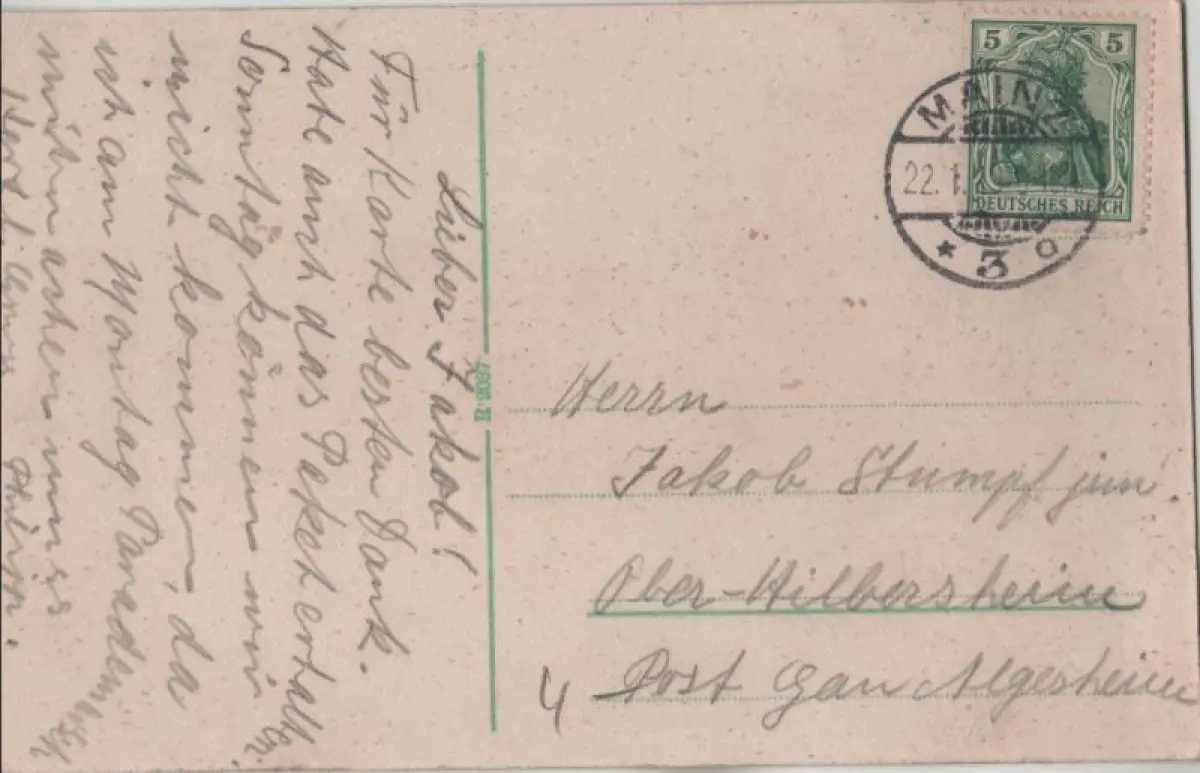 Lieber Jakob!
Für Karte besten Dank.
Habe auch das Paket erhalten.
Sonntag können wir
nicht kommen, da
ich am Montag
mitmachen muss
Herzl. Philipp.
E. 2087
5 5
DEUTSCHES REICH
MAINZ
22. 1.
* 3 a
Herrn
Jakob Stumpf jun.
Ober-Hilbersheim
Post Gau Algesheim
4